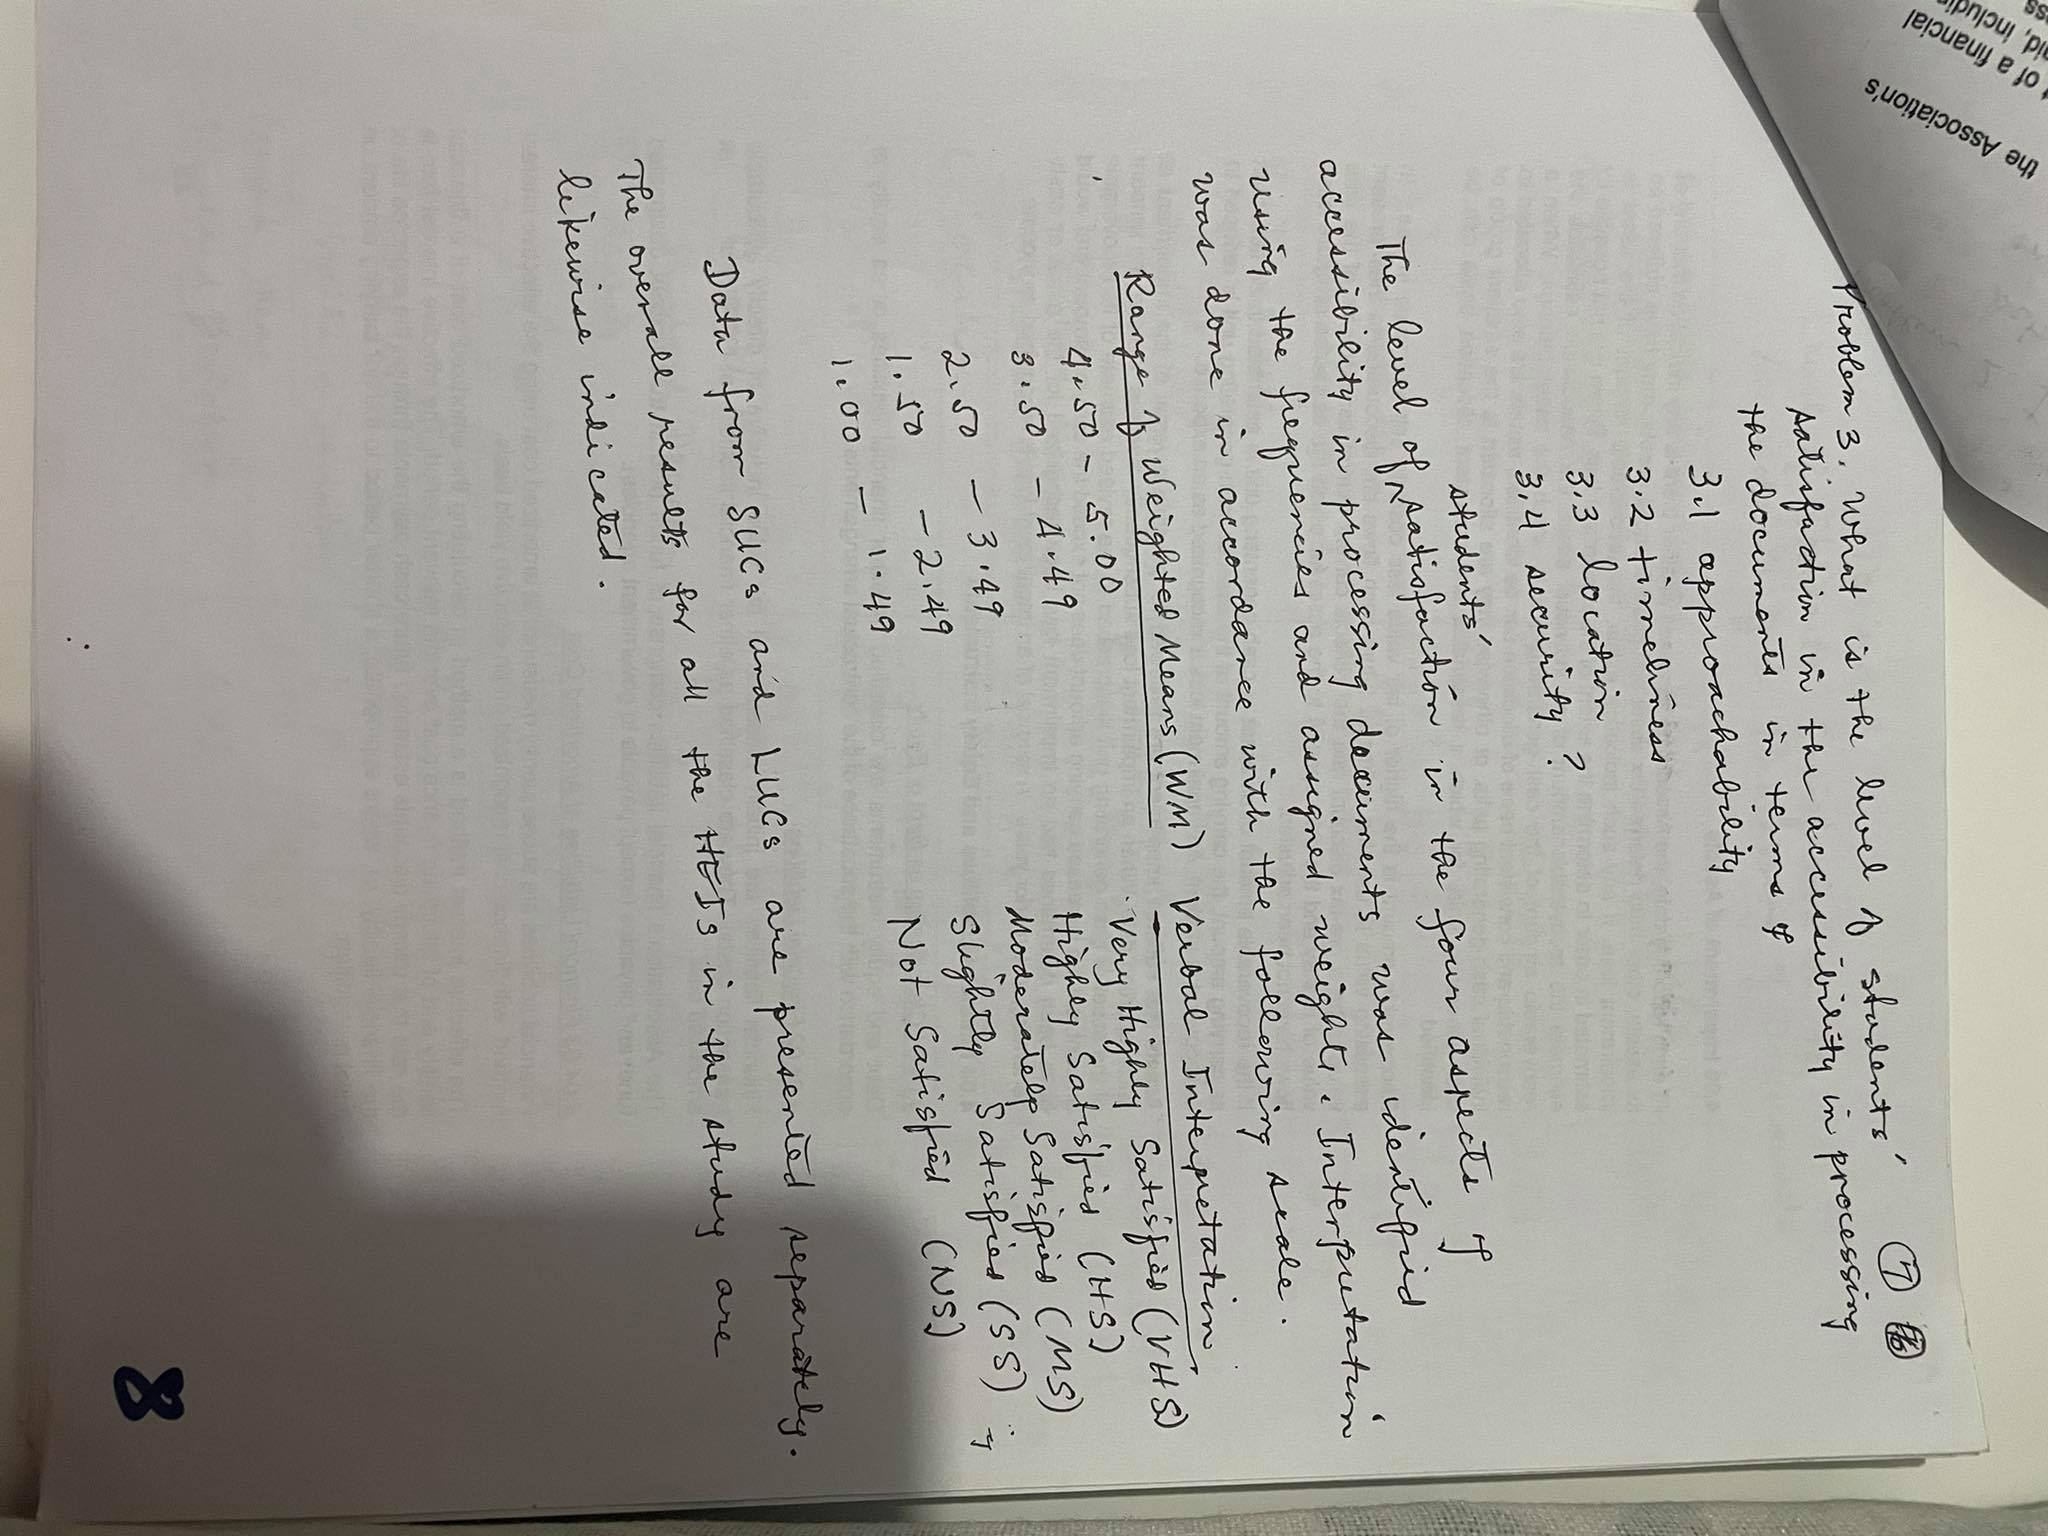 7 16
Problem 3. What is the level of students'
satisfaction in the accessibility in processing
the documents in terms of
3.1 approachability
3.2 timeliness
3.3 location
3.4 security?
students'
The level of satisfaction in the four aspects of
accessibility in processing documents was identified
using the frequencies and assigned weights. Interpretation
was done in accordance with the following scale.
Range of Weighted Means (WM) Verbal Interpretation
4.50 - 5.00 Very Highly Satisfied (VHS)
3.50 - 4.49 Highly Satisfied (HS)
2.50 - 3.49 Moderately Satisfied (MS)
1.50 - 2.49 Slightly Satisfied (SS)
1.00 - 1.49 Not Satisfied (NS)
Data from SUCs and LUCs are presented separately.
The overall results for all the HEIs in the study are
likewise indicated.
8
the Association's
of a financial
includi